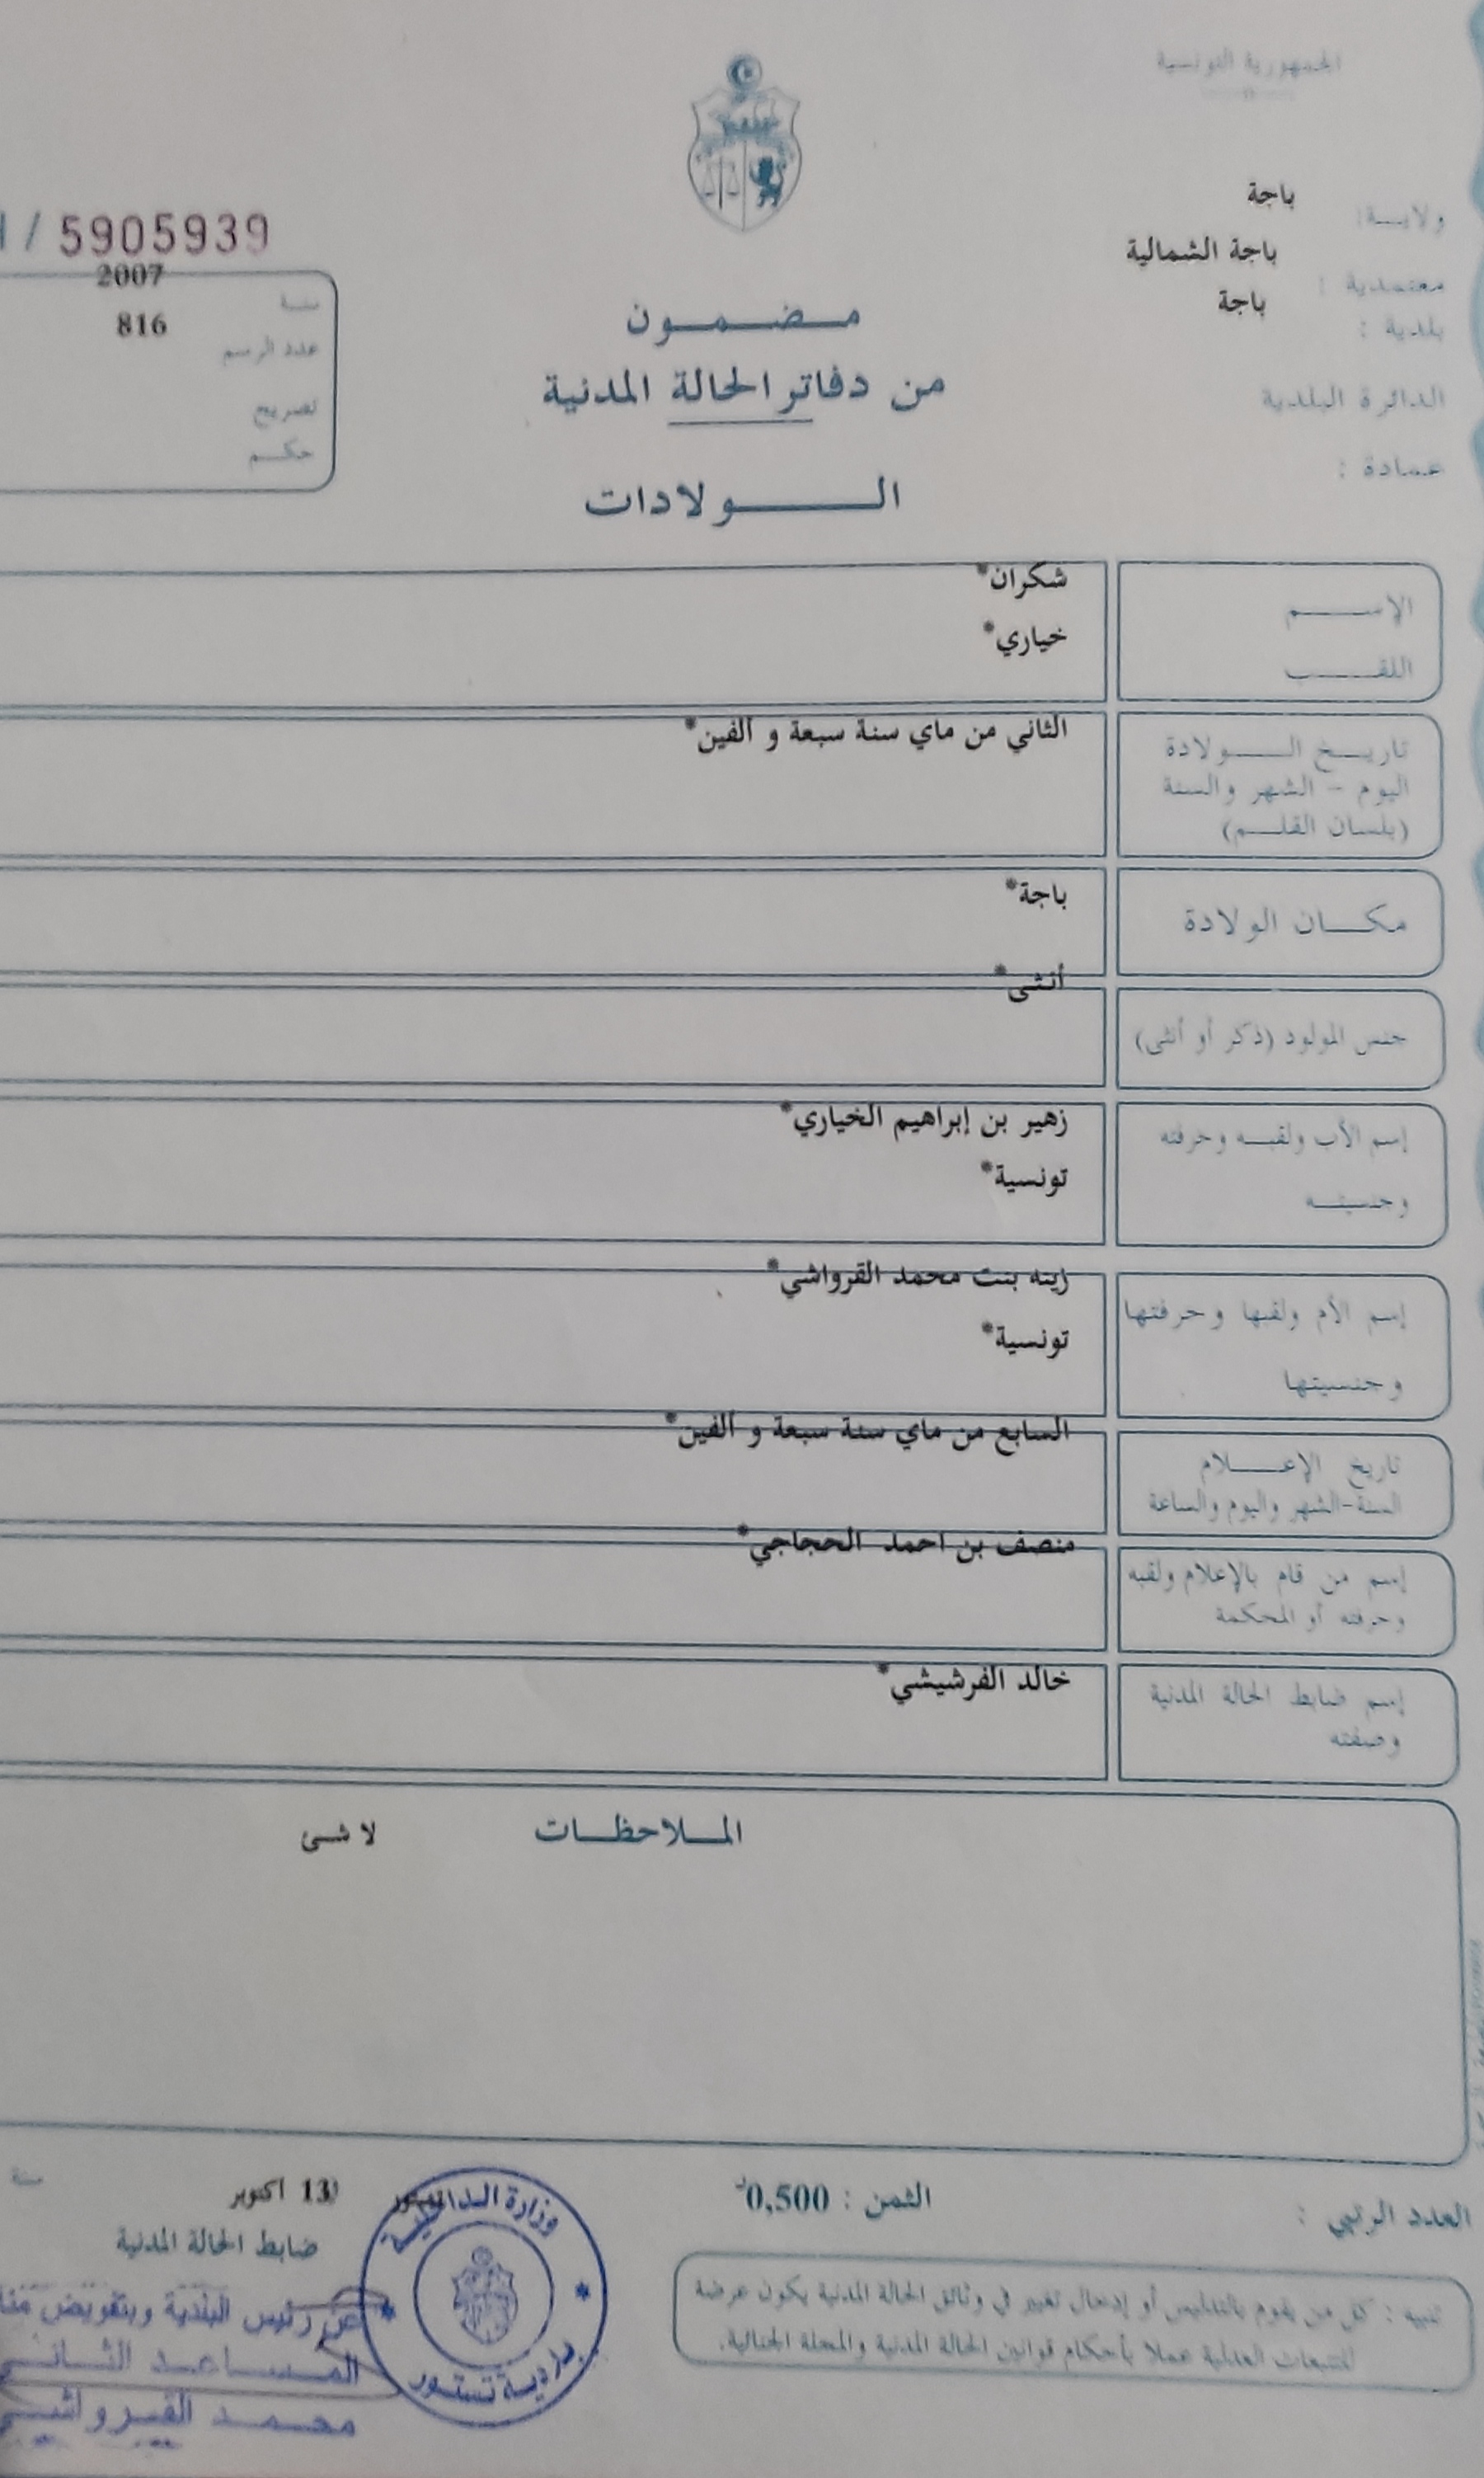 الجمهورية التونسية
ولايـة: باجة
معتمدية : باجة الشمالية
بلدية : باجة
الدائرة البلدية
عمادة :
/ 5905939
سنة 2007
عدد الرسم 816
تصريح
حكم
مضمون
من دفاتر الحالة المدنية
الولادات
الإسم شكران*
اللقب خياري*
تاريخ الولادة الثاني من ماي سنة سبعة و ألفين*
اليوم - الشهر والسنة
(بلسان القلم)
مكان الولادة باجة*
أنثى*
جنس المولود (ذكر أو أنثى)
إسم الأب ولقبه وحرفته زهير بن إبراهيم الخياري*
وجنسيته تونسية*
إسم الأم ولقبها وحرفتها زينه بنت محمد القرواشي*
وجنسيتها تونسية*
تاريخ الإعلام السابع من ماي سنة سبعة و ألفين*
السنة-الشهر واليوم والساعة
إسم من قام بالإعلام ولقبه منصف بن احمد الحجاجي*
وحرفته أو المحكمة
إسم ضابط الحالة المدنية خالد الفرشيشي*
وصفته
الملاحظات لا شى
العدد الرتبي :
الثمن : 0,500د
13 اكتوبر سنة
ضابط الحالة المدنية
تنبيه : كل من يقوم بالتدليس أو إدخال تغيير في وثائق الحالة المدنية يكون عرضة
للتتبعات العدلية عملا بأحكام قوانين الحالة المدنية والمجلة الجنائية.
وزارة الداخلية
بلدية تستور
عن رئيس البلدية وبتفويض منه
المساعد الثاني
محمد القيرواشي